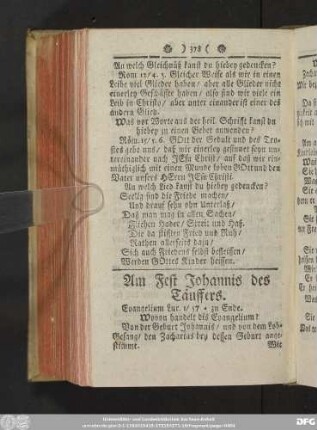 ) 378 (
An welch Gleichnüß kanst du hiebey gedencken?
Rom. 12/4. 5. Gleicher Weise als wir in einen
Leibe viel Glieder haben/ aber alle Glieder nicht
einerley Geschäffte haben/ also sind wir viele ein
Leib in Christo/ aber unter einander ist einer des
andern Glied.
Was vor Worte aus der heil. Schrifft kanst du
hiebey zu einen Gebet anwenden?
Röm. 15/5. 6. GOtt der Gedult und des Tro-
stes gebe uns/ daß wir einerley gesinnet seyn un-
tereinander nach JEsu Christ/ auf daß wir ein-
müthiglich mit einen Munde loben GOtt und den
Vater unsers HErrn JEsu Christi.
An welch Lied kanst du hiebey gedencken?
Seelig sind die Friede machen/
Und drauf sehn ohn Unterlaß/
Daß man mag in allen Sachen/
Fliehen Hader/ Streit und Haß.
Die da stifften Fried und Ruh/
Rathen allerseits dazu/
Sich auch Friedens selbst befleissen/
Werden GOttes Kinder heissen.
Am Fest Johannis des
Täuffers.
Evangelium Luc. 1/57 - zu Ende.
Wovon handelt diß Evangelium?
Von der Geburt Johannis/ und von dem Lob-
Gesang/ den Zacharias bey dessen Geburt ange-
stimmt.
Wie